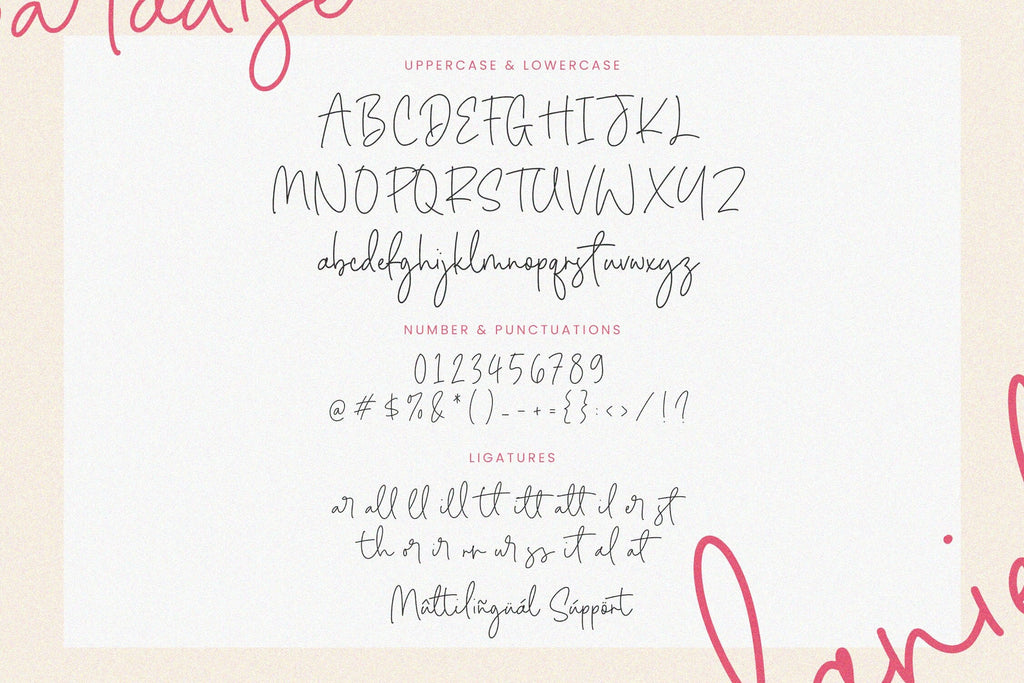 UPPERCASE & LOWERCASE
ABCDEFGHIJKL
MNOPQRSTUVWXYZ
abcdefghijklmnopqrstuvwxyz
NUMBER & PUNCTUATIONS
0123456789
@#$%&*()_-+={}:<>/!?
LIGATURES
ar all ll ill tt itt att il er st
th or ir on ur ss it al at
Mâttilingüál Súppört